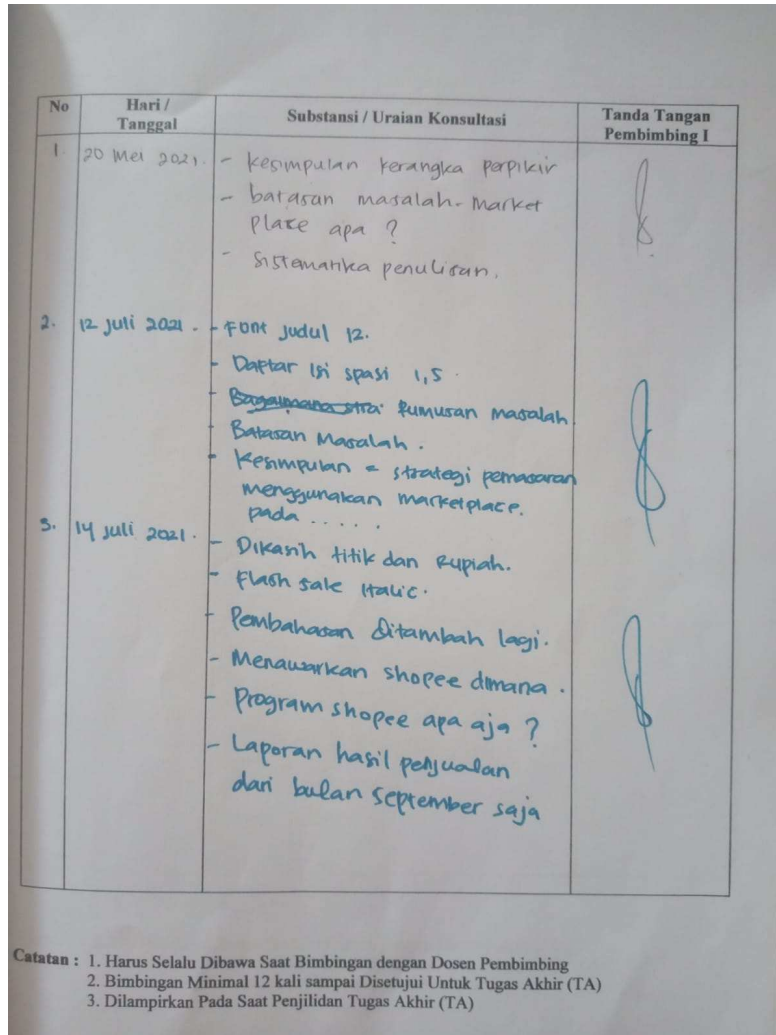 No Hari / Tanggal Substansi / Uraian Konsultasi Tanda Tangan Pembimbing I
1. 20 Mei 2021. - kesimpulan kerangka perpikir
- batasan masalah - Market
place apa ?
- Sistematika penulisan.
2. 12 Juli 2021 - - Font Judul 12.
- Daftar Isi spasi 1,5.
- Bagaimana stra Rumusan masalah.
- Batasan Masalah.
- Kesimpulan = strategi pemasaran
menggunakan marketplace.
pada . . . . .
3. 14 Juli 2021. - Dikasih titik dan Rupiah.
- Flash sale Italic.
- Pembahasan Ditambah lagi.
- Menawarkan shopee dimana.
- Program shopee apa aja ?
- Laporan hasil penjualan
dari bulan September saja
Catatan : 1. Harus Selalu Dibawa Saat Bimbingan dengan Dosen Pembimbing
2. Bimbingan Minimal 12 kali sampai Disetujui Untuk Tugas Akhir (TA)
3. Dilampirkan Pada Saat Penjilidan Tugas Akhir (TA)